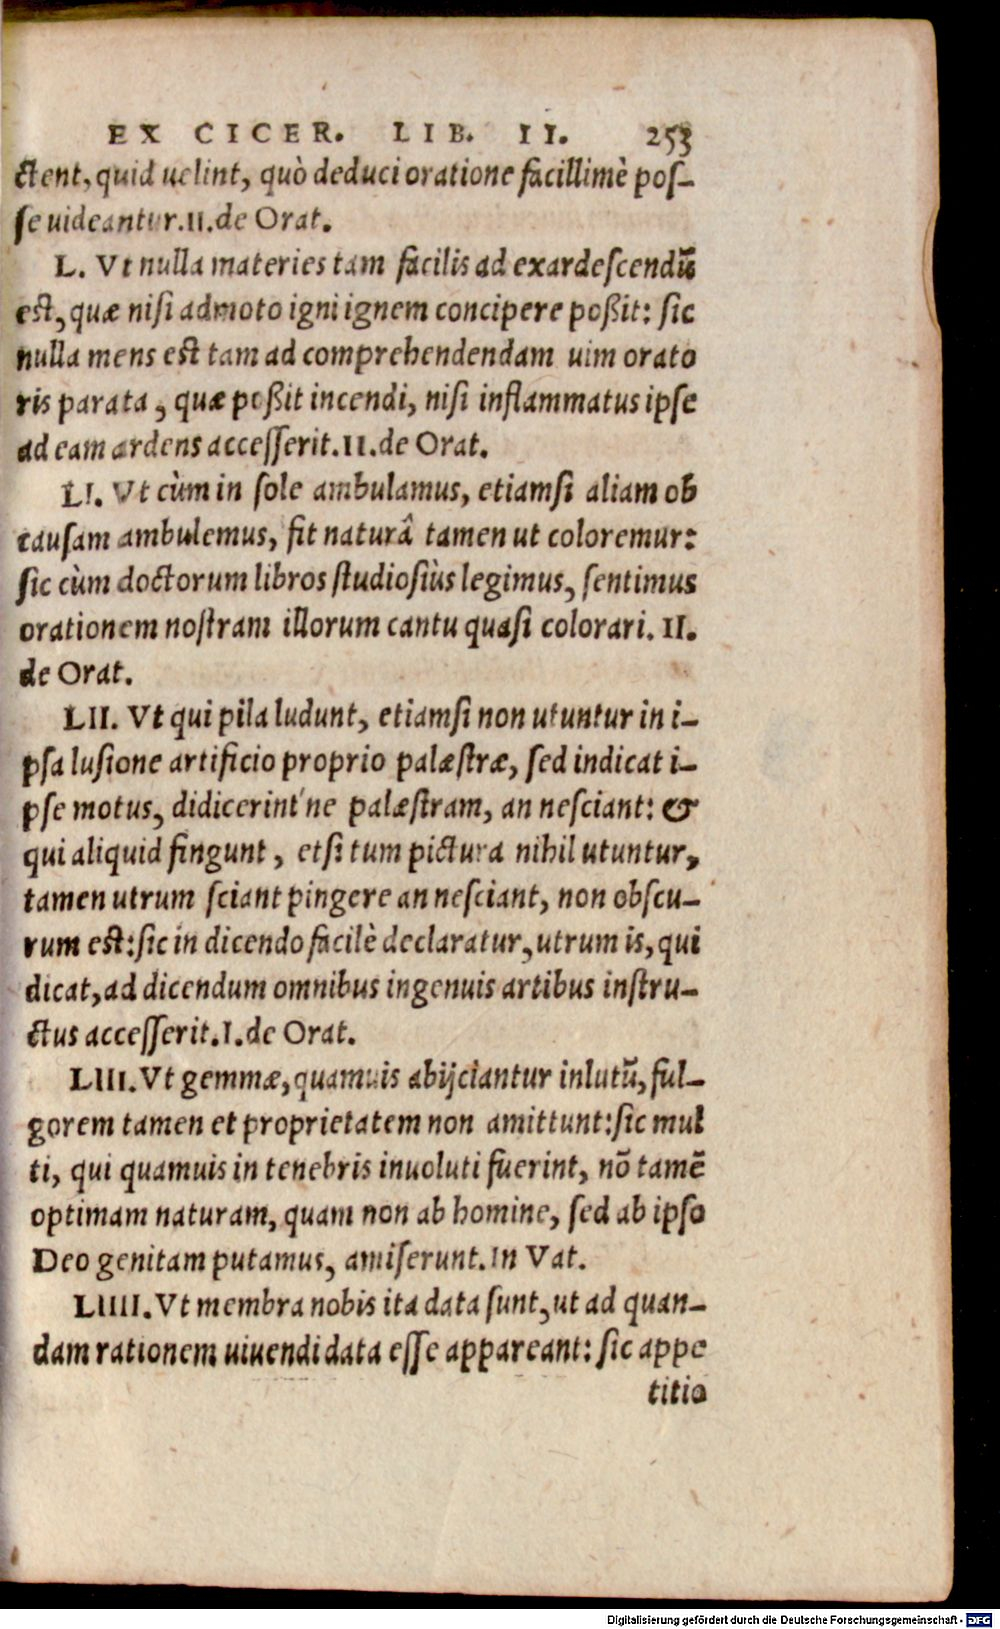 EX CICER. LIB. II. 253
ctent, quid uelint, quò deduci oratione facillimè pos-
se uideantur. II. de Orat.
L. Vt nulla materies tam facilis ad exardescendū
est, quæ nisi admoto igni ignem concipere poßit: sic
nulla mens est tam ad comprehendendam uim orato
ris parata, quæ poßit incendi, nisi inflammatus ipse
ad eam ardens accesserit. II. de Orat.
LI. Vt cùm in sole ambulamus, etiamsi aliam ob
causam ambulemus, fit naturâ tamen ut coloremur:
sic cùm doctorum libros studiosiùs legimus, sentimus
orationem nostram illorum cantu quasi colorari. II.
de Orat.
LII. Vt qui pila ludunt, etiamsi non utuntur in i-
psa lusione artificio proprio palæstræ, sed indicat i-
pse motus, didicerint'ne palæstram, an nesciant: &
qui aliquid fingunt, etsi tum pictura nihil utuntur,
tamen utrum sciant pingere an nesciant, non obscu-
rum est: sic in dicendo facilè declaratur, utrum is, qui
dicat, ad dicendum omnibus ingenuis artibus instru-
ctus accesserit. I. de Orat.
LIII. Vt gemmæ, quamuis abijciantur in lutū, ful-
gorem tamen et proprietatem non amittunt: sic mul
ti, qui quamuis in tenebris inuoluti fuerint, nō tamē
optimam naturam, quam non ab homine, sed ab ipso
Deo genitam putamus, amiserunt. In Vat.
LIIII. Vt membra nobis ita data sunt, ut ad quan-
dam rationem uiuendi data esse appareant: sic appe
titio
Digitalisierung gefördert durch die Deutsche Forschungsgemeinschaft - DFG